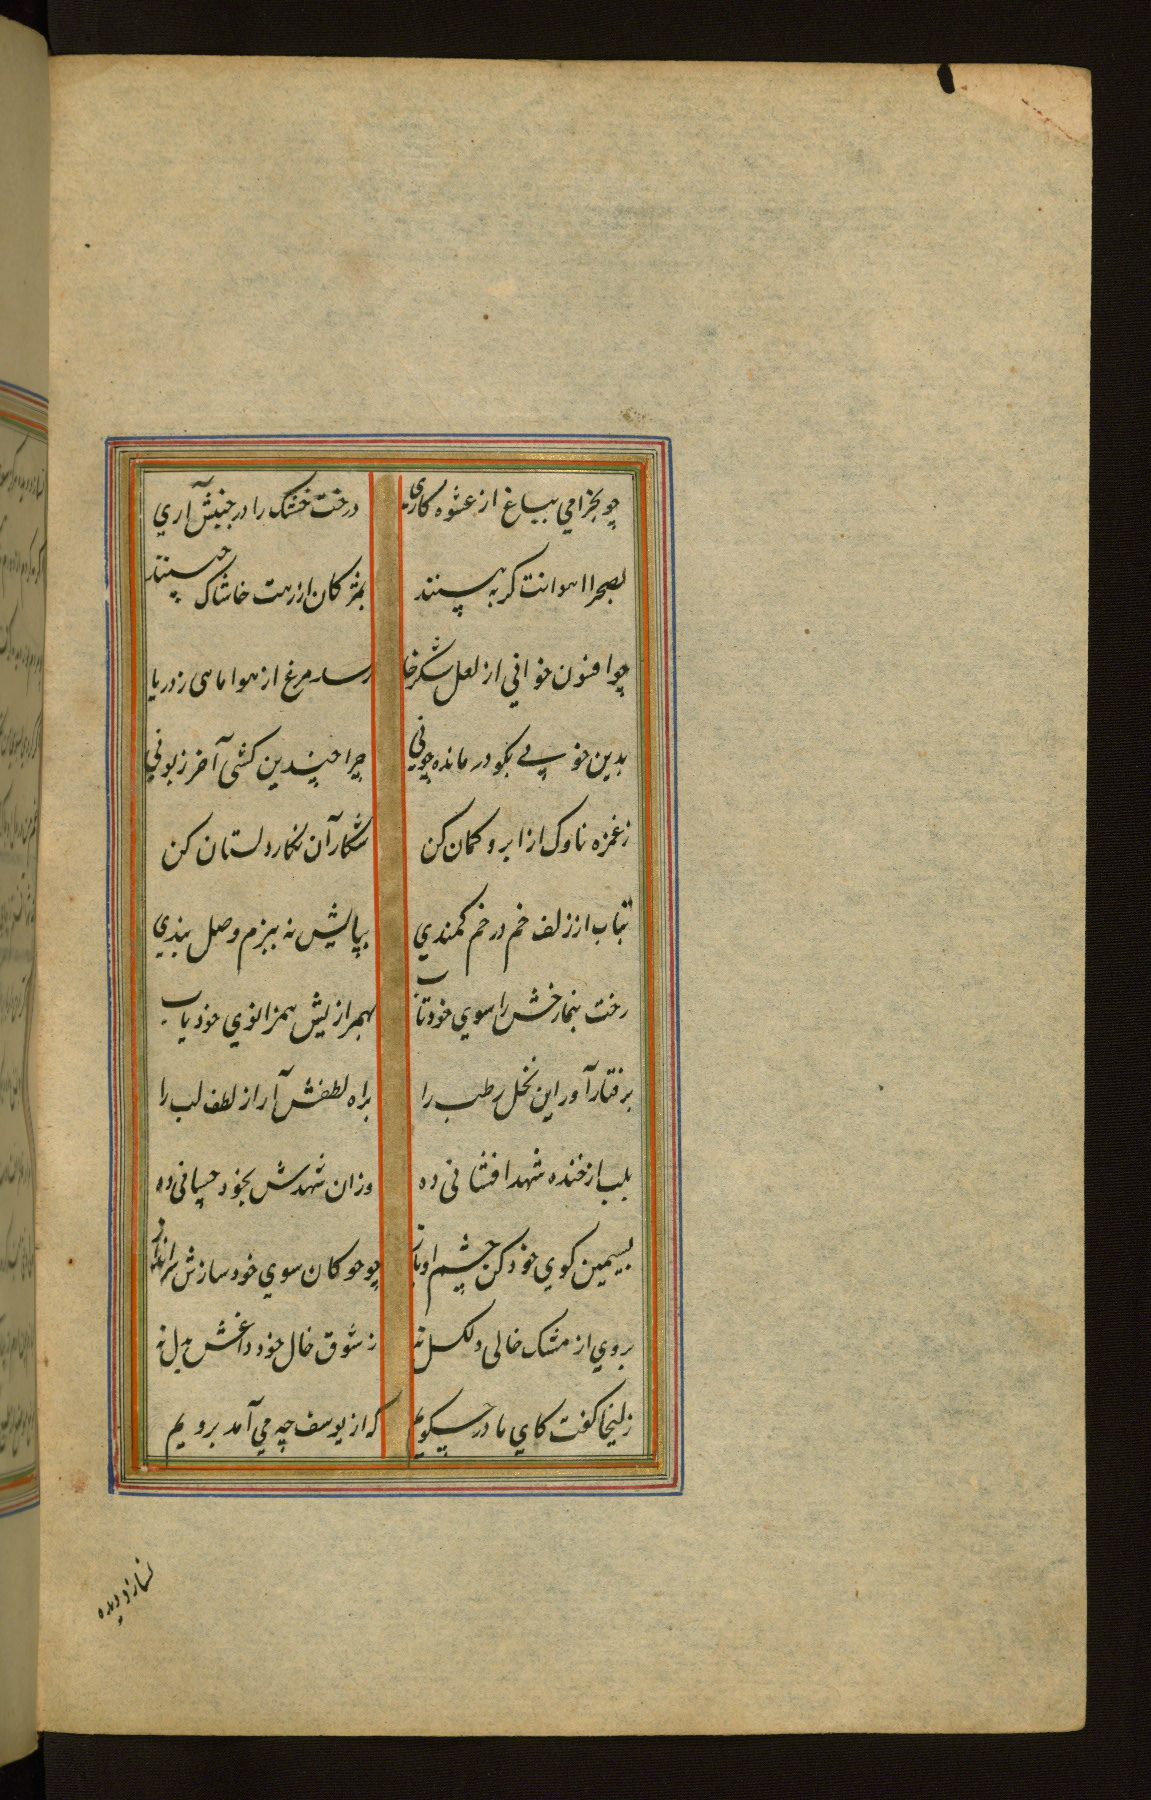 چو بخرامي بباغ از عشوه كاري درخت خشك را در جنبش آري
بصحرا اهوانت كر به بينند بمژكان از رهت خاشاك چينند
چو افسون خواني از لعل شكرخا رسد مرغ از هوا ماهی ز دريا
بدين خوبي بكو درمانده چوني چرا چندين كشی آخر زبوني
زغمزه ناوك از ابرو كمان كن شكار آن نكار دلستان كن
بتاب از زلف خم در خم كمندي بپايش نه ببزم وصل بندي
رخت بنما رخش را سوي خود تاب بمهر ازيش همزانوي خود ياب
برفتار آور اين نخل رطب را براه لطفش آر از لطف لب را
بلب از خنده شهد افشانی ده وزان شهدش بخود چسپانی ده
بسيمين كوي خود كن چشم او باز چو چوكان سوي خود سازش سرانداز
بروي از مشك خالی دلكسل نه ز شوق خال خود داغش بدل نه
زليخا كفت كاي مادر چه كويم كه از يوسف چه مي آمد برويم
نسازد ديده